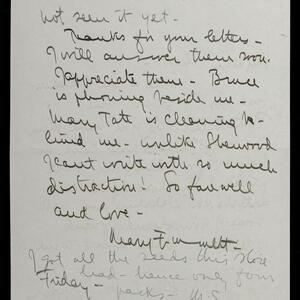 not seen it yet -
Thanks for your letters -
I will answer them soon.
I appreciate them - Bruce
is phoning beside me -
Mary Tate is cleaning be-
hind me - unlike Sherwood
I cant write with so much
distraction! So farewell
and love -
Mary
I got all the seeds this store
had - hence only four
Friday - packs - M.S.